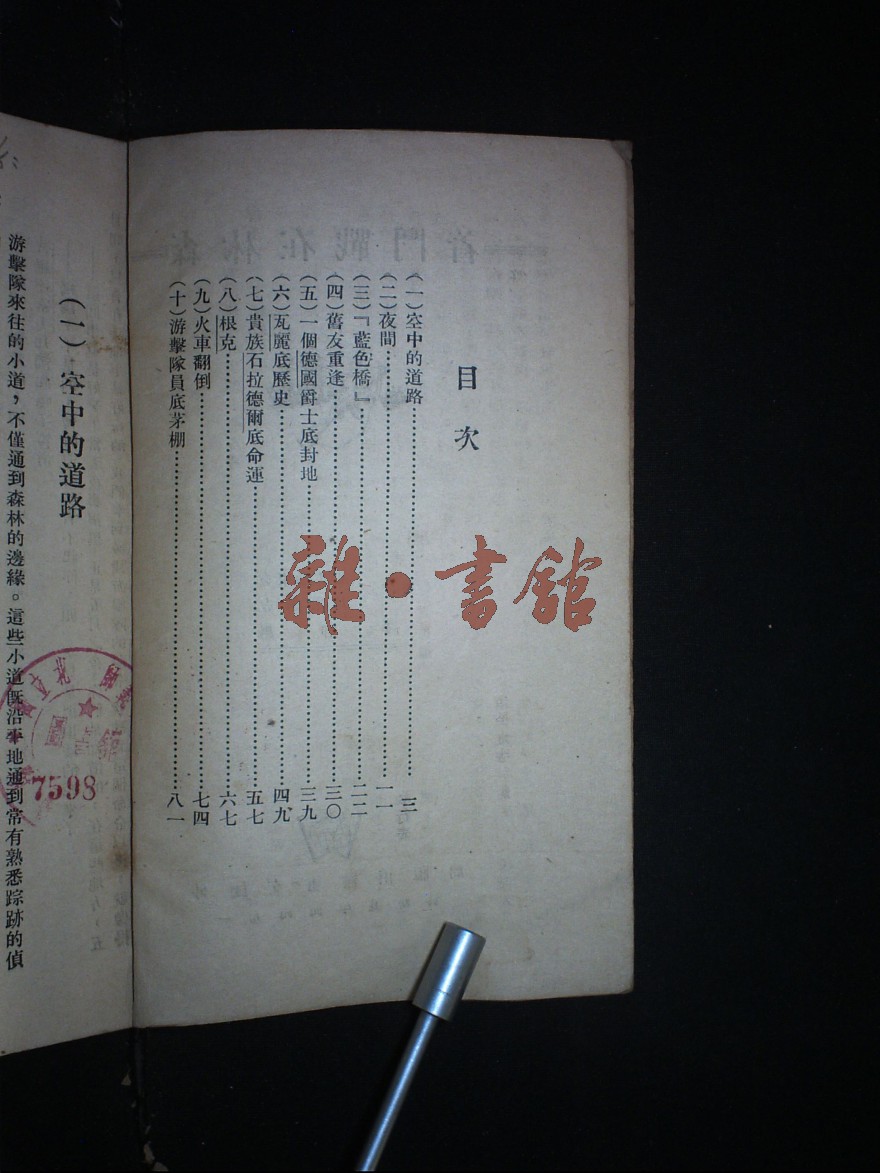 目次
(一)空中的道路……三
(二)夜間……一一
(三)『藍色橋』……二二
(四)舊友重逢……三〇
(五)一個德國爵士底封地……三九
(六)瓦麗底歷史……四九
(七)貴族石拉德爾底命運……五七
(八)根克……六七
(九)火車翻倒……七四
(十)游擊隊員底茅棚……八一
(一)空中的道路
游擊隊來往的小道,不僅通到森林的邊緣。這些小道既沿平地通到常有熟悉踪跡的偵
雜·書館
7598